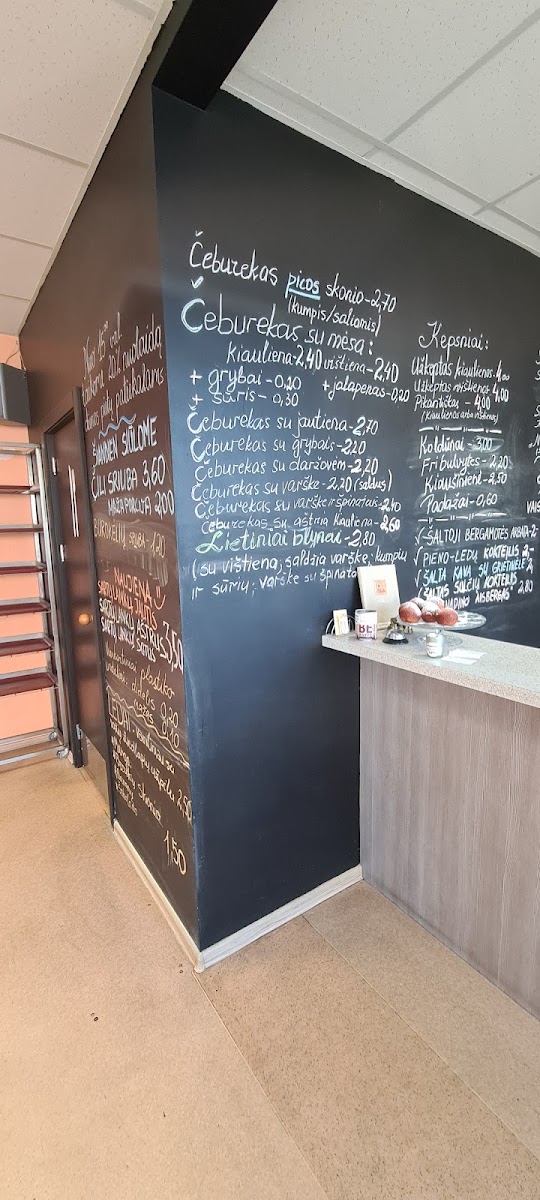 Čeburekas picos skonio-2,70
(kumpis/saliamis)
Čeburekas su mėsa:
kiauliena-2,40 vištiena-2,40
+ grybai - 0,20 +jalapenas-0,20
+ sūris - 0,30
Čeburekas su jautiena-2,70
Čeburekas su grybais-2,20
Čeburekas su daržovėm-2,20
Čeburekas su varške-2,20 (saldus)
Čeburekas su varške ir špinatais-2,40
Čeburekas su aštria kiauliena-2,60
Lietiniai blynai-2,80
(su vištiena, saldžia varške, kumpiu
ir sūriu, varške su špinatais
Kepsniai:
Užkeptas kiaulienos-4,00
Užkeptas vištienos 4,00
Pikantiškas - 4,00
(Kiaulienos arba vištienos)
Koldūnai - 3,00
Fri bulvytės - 2,20
Kiaušinienė - 2,50
Padažai - 0,60
✓ŠALTOJI BERGAMOTĖS ARBATA-2
✓PIENO-LEDŲ KOKTEILIS 2,-
✓ŠALTA KAVA SU GRIETINĖLE 2,
✓ŠALTAS SULČIŲ KOKTEILIS
AISBERGAS" 2,80
Nuo 15 00 val.
20% nuolaida
pietų patiekalams
ŠIANDIEN SIŪLOME
ČILI SRIUBA 3,60
MAŽA PORCIJA 2,00
SRIUBA 1,20
NAUJIENA
3,50
Vienkartiniai plastiko
indeliai: didelis 0,20
mažas 0,10
LEDAI
2,50
skoniai
1,50